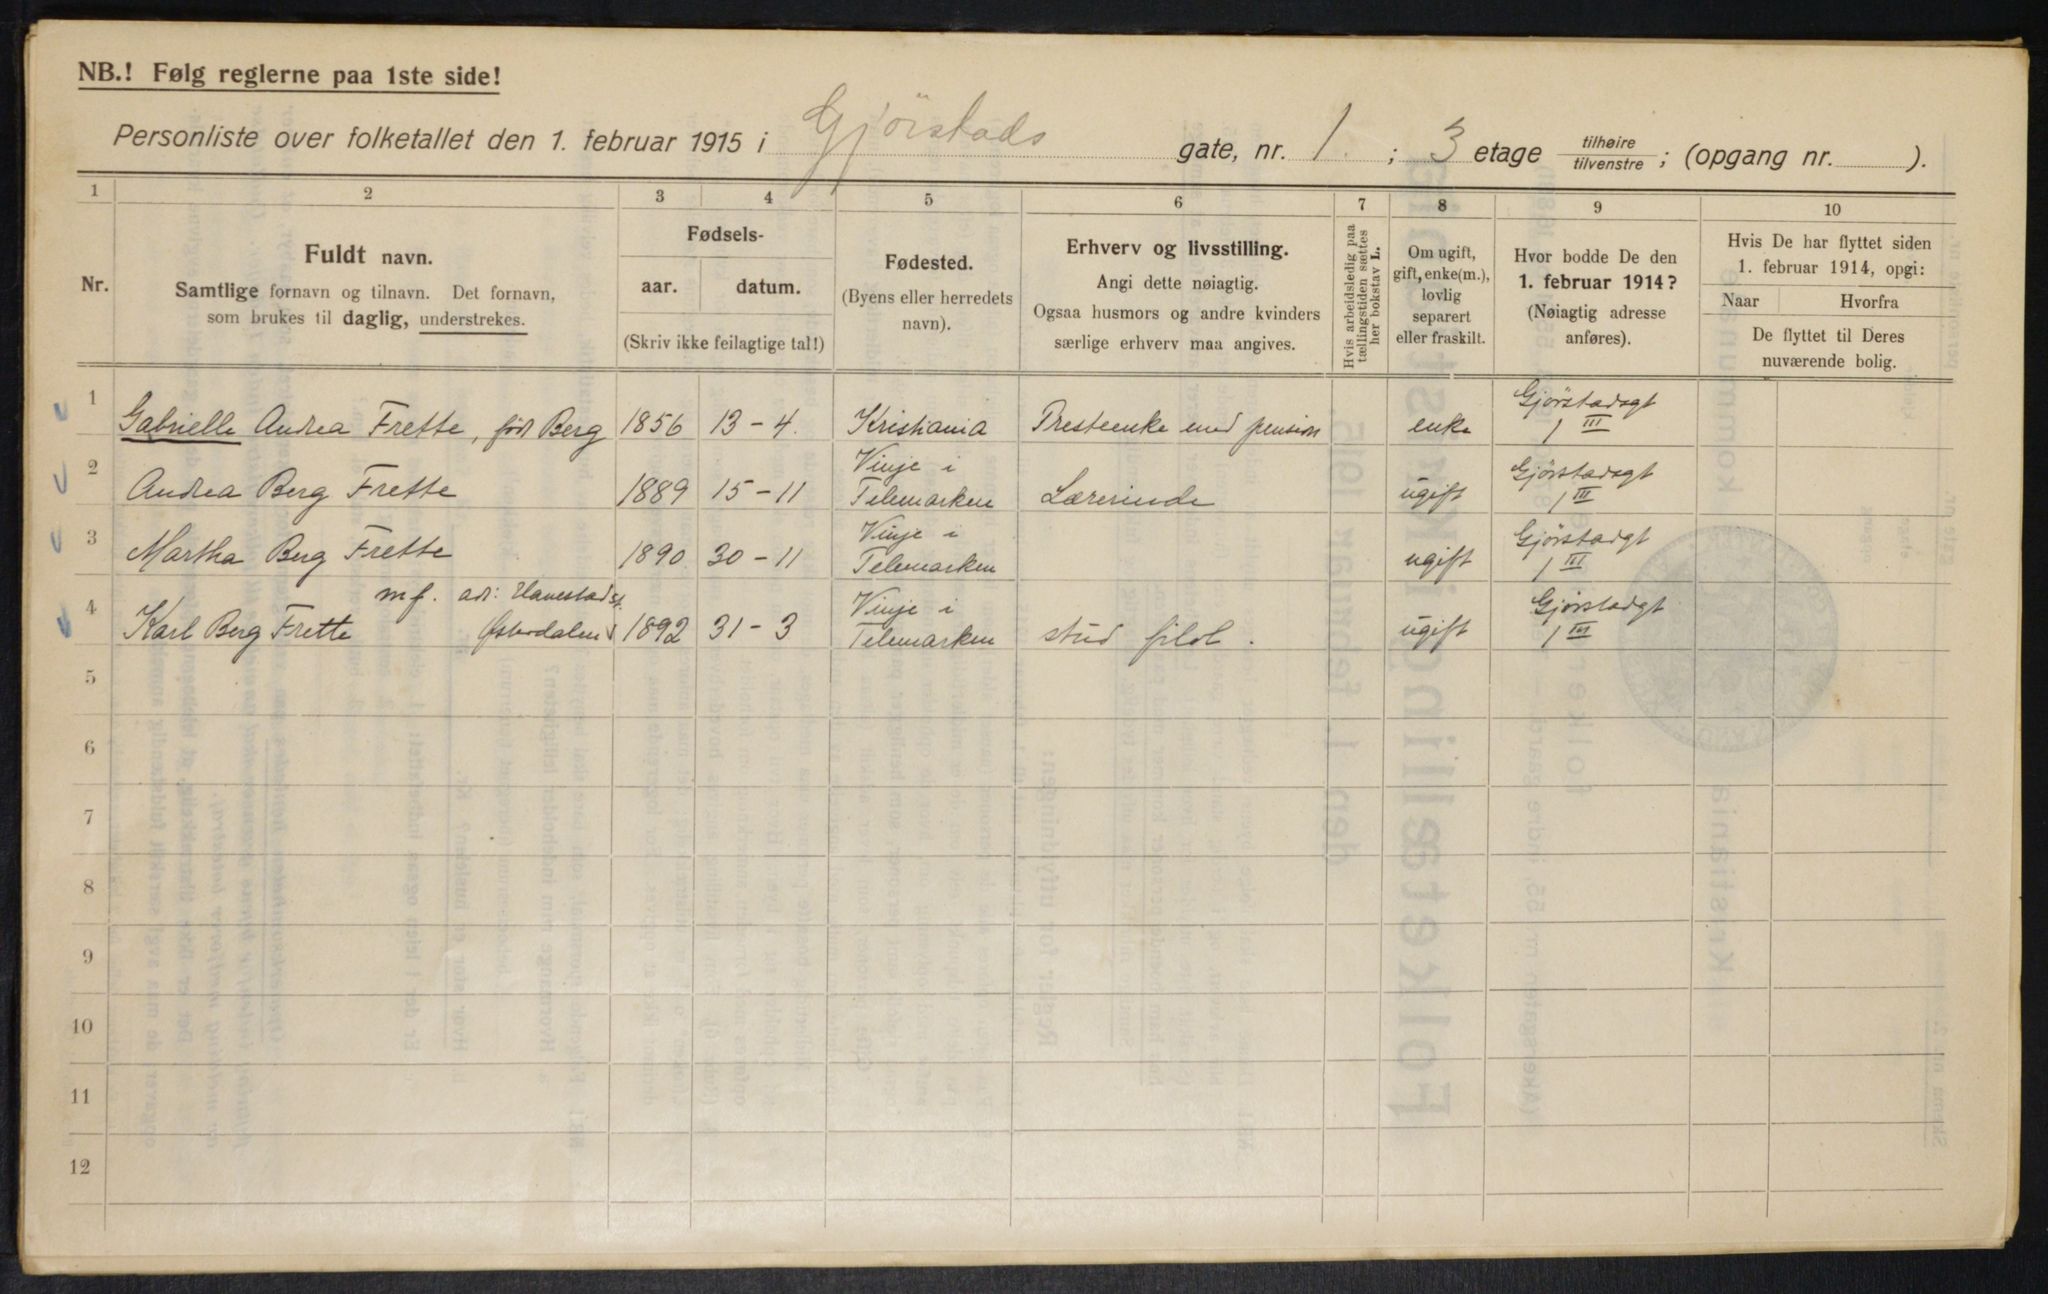 NB.! Følg reglerne paa 1ste side!
Personliste over folketallet den 1. februar 1915 i Gjörstads gate, nr. 1. ; 3 etage tilhøire/tilvenstre ; (opgang nr. ).
1 2 3 4 5 6 7 8 9 10
Nr.
Fuldt navn.
Samtlige fornavn og tilnavn. Det fornavn,
som brukes til daglig, understrekes.
Fødsels-
aar. datum.
(Skriv ikke feilagtige tal!)
Fødested.
(Byens eller herredets
navn).
Erhverv og livsstilling.
Angi dette nøiagtig.
Ogsaa husmors og andre kvinders
særlige erhverv maa angives.
Hvis arbeidsledig paa
tællingstiden sættes
her bokstav L.
Om ugift,
gift, enke(m.),
lovlig
separert
eller fraskilt.
Hvor bodde De den
1. februar 1914?
(Nøiagtig adresse
anføres).
Hvis De har flyttet siden
1. februar 1914, opgi:
Naar Hvorfra
De flyttet til Deres
nuværende bolig.
1 Gabrielle Andrea Frette, född Berg 1856 13-4. Kristiania Presteenke med pension enke Gjörstadsgt
1 III
2 Andrea Berg Frette 1889 15-11 Vinje i
Telemarken Lærerinde ugift Gjörstadsgt
1 III
3 Martha Berg Frette 1890 30-11 Vinje i
Telemarken ugift Gjörstadgt
1 III
4 Karl Berg Frette mf. adr: Hanestad st.
Østerdalen 1892 31-3 Vinje i
Telemarken stud filol. ugift Gjörstadgt
1 III
5
6
7
8
9
10
11
12